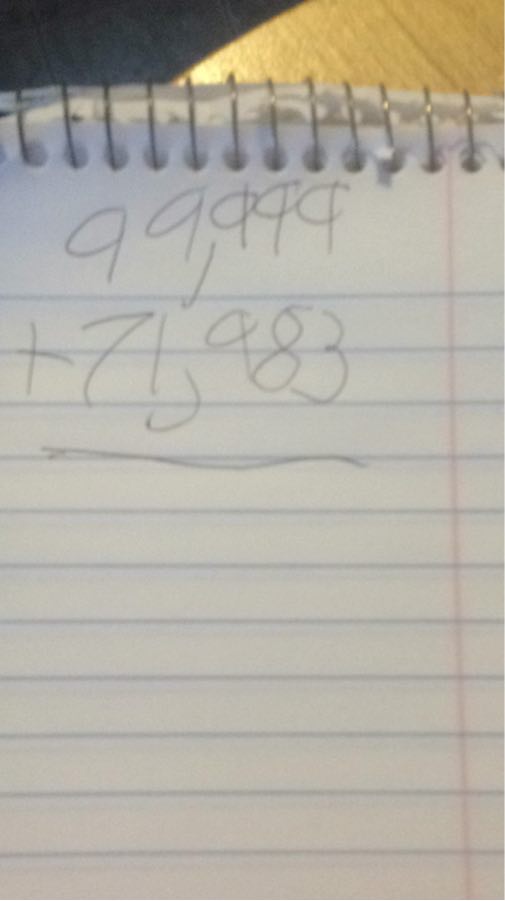 99,999
+71,983